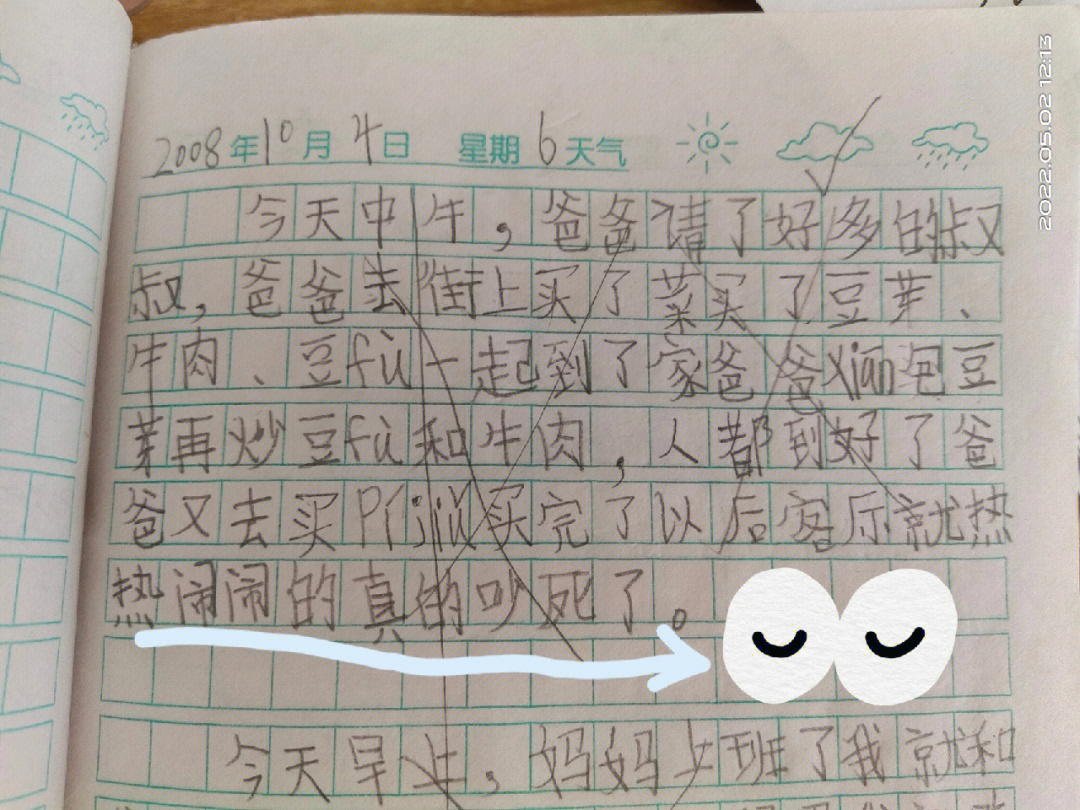 2022.05.02 12:13
2008年10月4日 星期6天气
今天中午，爸爸请了好多的叔叔
叔，爸爸去街上买了菜买了豆芽、
牛肉、豆fǔ一起到了家爸爸xiān 豆
芽再炒豆fǔ和牛肉，人都到好了爸
爸又去买Pí jiǔ买完了以后客厅就热
热闹闹的真的吵死了。
今天早上，妈妈上班了我就和